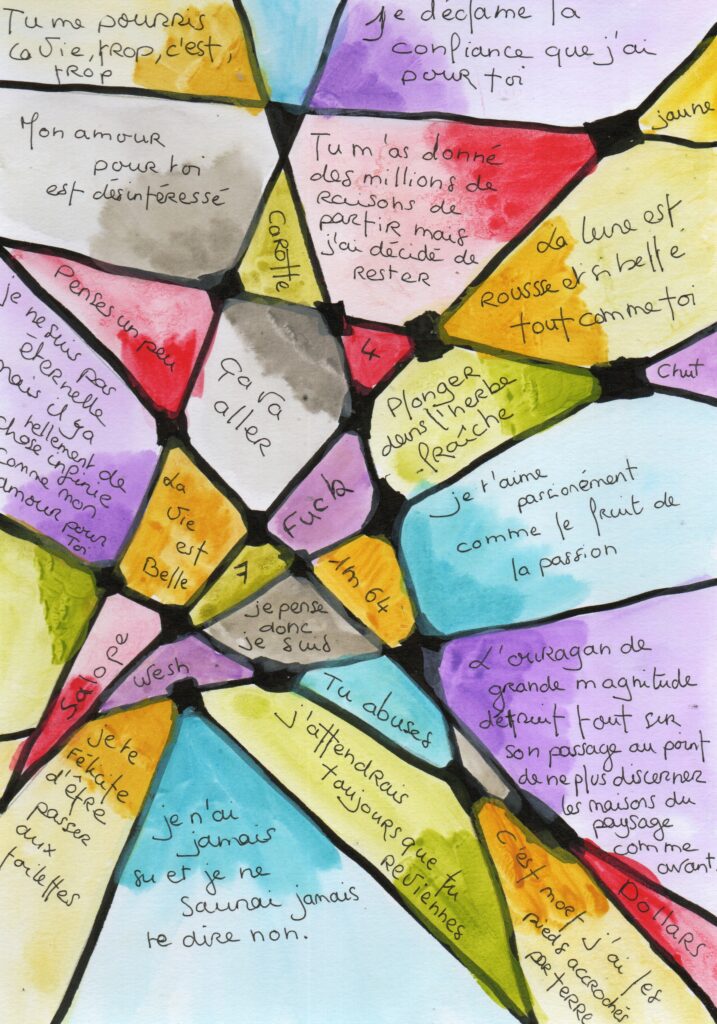 Tu me pourris
la vie, trop, c'est,
trop
Je déclame la
confiance que j'ai
pour toi
jaune
Mon amour
pour toi
est désintéressé
Tu m'as donné
des millions de
raisons de
partir mais
j'ai décidé de
rester
Carotte
La lune est
rousse et si belle
tout comme toi
Penses un peu
4
Chut
je ne suis pas
éternelle
mais il y a
tellement de
chose infinie
comme mon
amour pour
toi
Ça va
aller
Plonger
dans l'herbe
fraîche
Fuck
je t'aime
passionément
comme le fruit de
la passion
La
vie
est
Belle
7
1m64
je pense
donc
je suis
Salope
Wesh
Tu abuses
L'ouragan de
grande magnitude
détruit tout sur
son passage au point
de ne plus discerner
les maisons du
paysage
comme
avant.
je te
félicite
d'être
passer
aux
toilettes
je n'ai
jamais
su et je ne
saurai jamais
te dire non.
j'attendrais
toujours que tu
reviennes
C'est mort j'ai les
pieds accrochés
par terre
Dollars